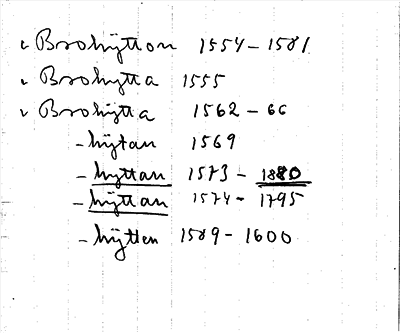 v Brohÿtton 1554-1581
v Brohytta 1555
v Brohÿtta 1562-66
-hÿtan 1569
-hyttan 1573-1880
-hÿttan 1574-1795
-hÿtten 1589-1600